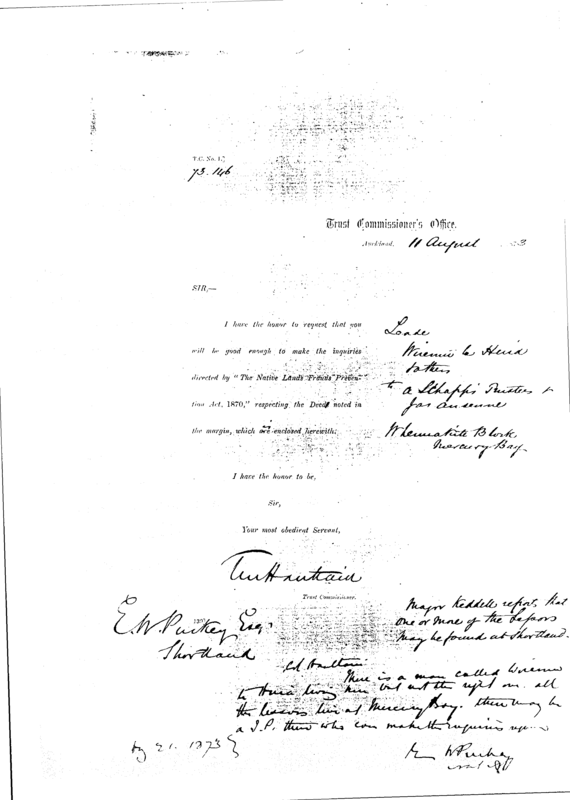 T.C. No. 1.
73.146
Trust Commissioner's Office.
Auckland, 11 August 3
SIR,—
I have the honor to request that you
will be good enough to make the inquiries
directed by "The Native Lands Frauds Preven-
tion Act, 1870," respecting the Deed noted in
the margin, which are enclosed herewith.
Wiremu te
& others
to a & 
Whenuakite Block
Mercury Bay
I have the honor to be,
Sir,
Your most obedient Servant,
Trust Commissioner.
E. W. Puckey Esq.
Shortland
Major Keddell reports that
one or more of the lessors
may be found at Shortland.
Col Haultain
There is a man called Wiremu
te living here but not the right one. all
the lessors live at Mercury Bay. there may be
a J.P. there who can make the inquiries
21. 1873
E W Puckey